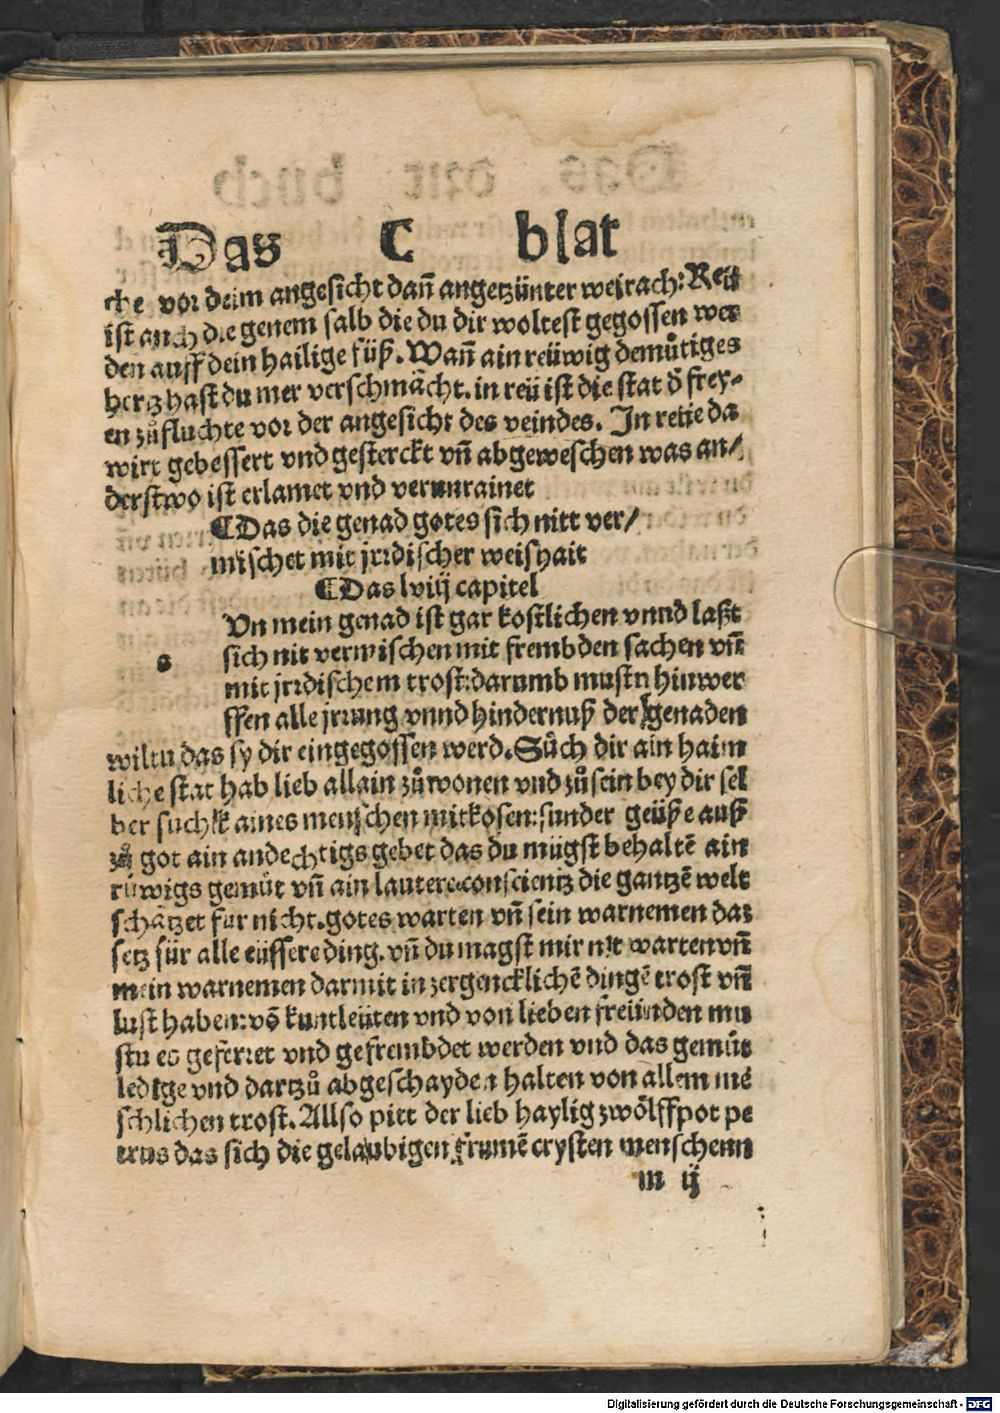 Das C blat
che vor deim angesicht dañ angetzünter weirach: Reü
ist auch die genem salb die du dir woltest gegossen wer
den auff dein hailige füß. Wañ ain reüwig demütiges
hertz hast du mer verschmächt. in reü ist die stat d̄ frey-
en zůfluchte vor der angesicht des veindes. In reüe da
wirt gebessert vnd gesterckt vñ abgeweschen was an/
derstwo ist erlamet vnd verunrainet
¶Das die genad gotes sich nitt ver/
mischet mit jrdischer weishait
¶Das lviij capitel
Vn mein genad ist gar kostlichen vnnd laßt
sich nit vermischen mit frembden sachen vñ
mit jrdischem trost: darumb mustu hinwer
ffen alle jrrung vnnd hindernuß der genaden
wiltu das sy dir eingegossen werd. Sůch dir ain haim
liche stat hab lieb allain zůwonen vnd zůsein bey dir sel
ber such k aines menschen mitkosen: sunder geüße auß
zů got ain andechtigs gebet das du mügst behaltē ain
rüwigs gemüt vñ ain lautere conscientz die gantzē welt
schätzet für nicht. gotes warten vñ sein warnemen daz
setz für alle eüssere ding. vñ du magst mir nit warten vñ
mein warnemen darmit in zergencklichē dingē trost vñ
lust haben: vō kuntleüten vnd von lieben freünden mu
stu es geferret vnd gefrembdet werden vnd das gemüt
ledige vnd dartzů abgeschayden halten von allem mē
schlichen trost. Allso pitt der lieb haylig zwölffpot pe
trus das sich die gelaubigen frumē crysten menschenn
m ij
Digitalisierung gefördert durch die Deutsche Forschungsgemeinschaft - DFG